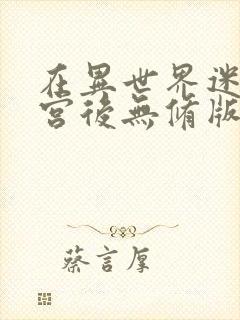 在異世界迷
宮後無脩版
蔡言厚